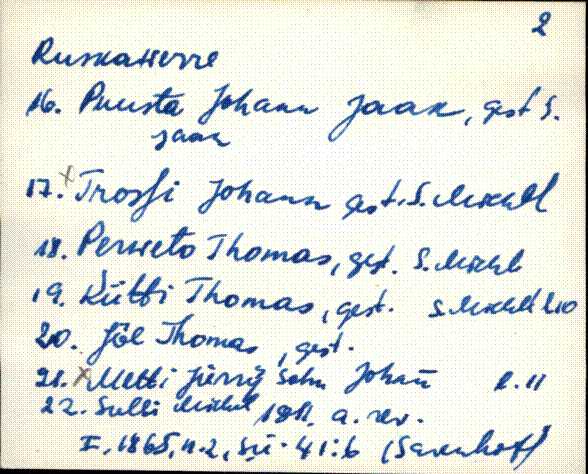 2
Ruskawerre
16. Puusta Johann Jaak, gest S.
Jaan
17. x Trossi Johann gest. S. Michel
18. Perweto Thomas, gest. S. Michel
19. Kütti Thomas, gest. S. Michel
20. Jöe Thomas, gest.
21. x Metti Jürry Sohn Johañ R. 11
22. Sulli Michel 1811. a. rev.
I, 1865, n. 2, sü. 41:6 (Sarenhof)